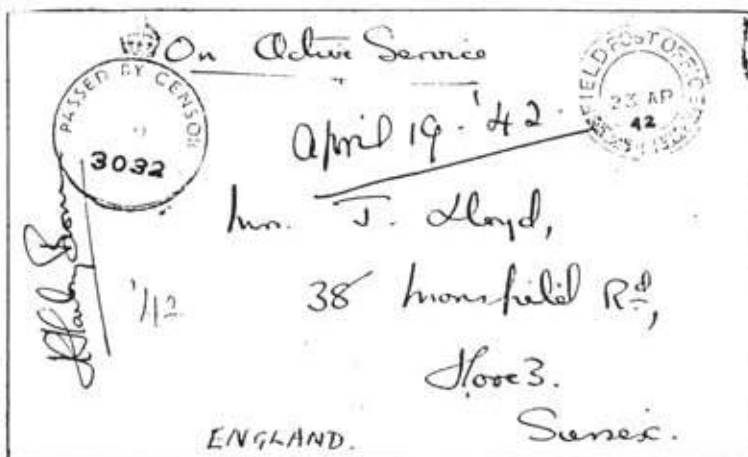 On Active Service
PASSED BY CENSOR
3032
FIELD POST OFFICE
23 AP
42
April 19 - '42.
Mrs. J. Lloyd,
38 Mansfield Rd,
Hove 3.
Sussex.
ENGLAND.